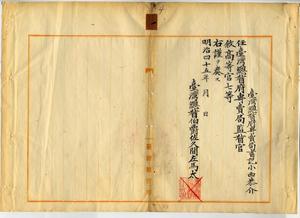 臺灣總督府專賣局書記小西恭介
任臺灣總督府專賣局監督官
敘高等官七等
右謹ヲ奏ス
明治四十五年 月 日
臺灣總督伯爵佐久間左馬太